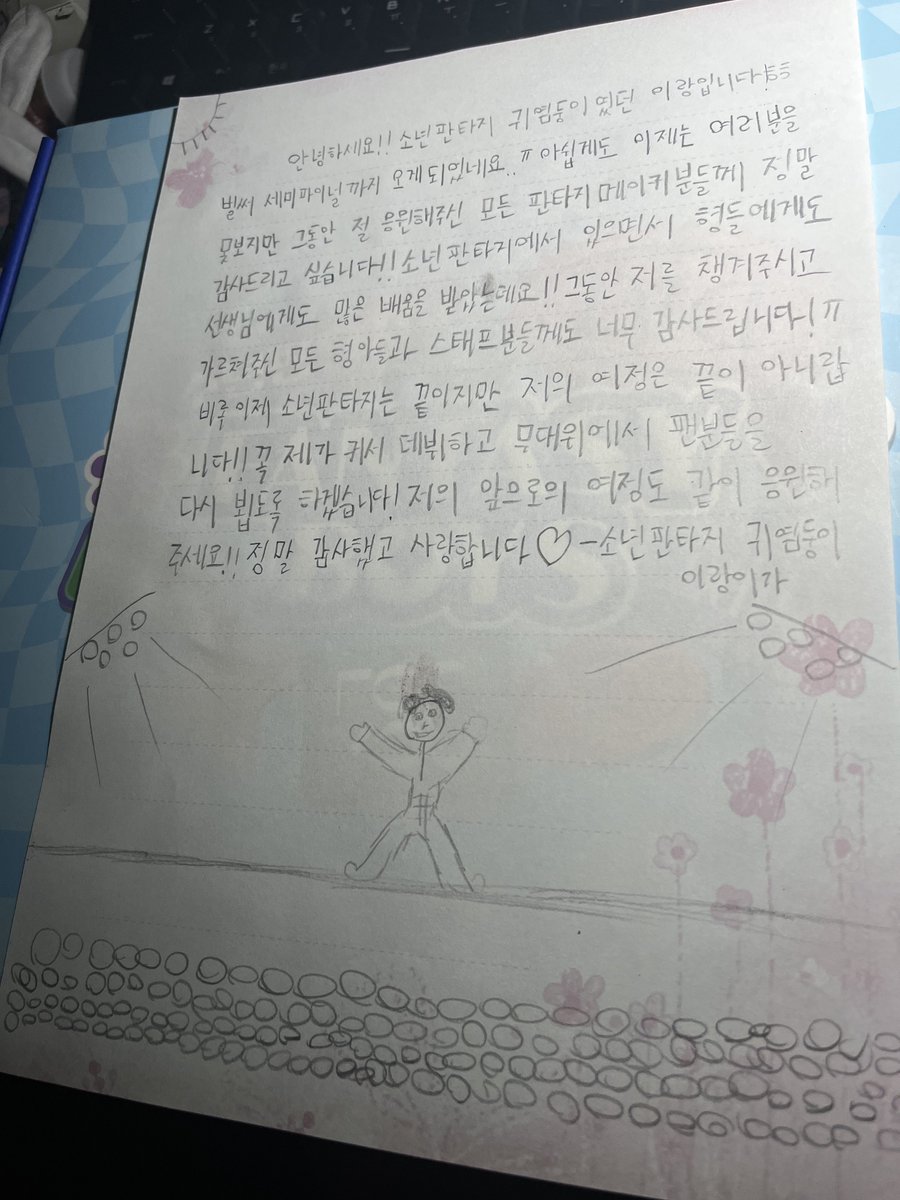 안녕하세요!! 소년판타지 귀염둥이 였던 이랑입니다!
벌써 세미파이널까지 오게되었네요..ㅠ 아쉽게도 이제는 여러분을
못보지만 그동안 절 응원해주신 모든 판타지메이커분들께 정말
감사드리고 싶습니다!! 소년판타지에서 있으면서 형들에게도
선생님에게도 많은 배움을 받았는데요!! 그동안 저를 챙겨주시고
가르쳐주신 모든 형아들과 스태프분들께도 너무 감사드립니다!ㅠ
비록이제 소년판타지는 끝이지만 저의 여정은 끝이 아니랍
니다!! 꼭 제가 커서 데뷔하고 무대위에서 팬분들을
다시 뵙도록 하겠습니다! 저의 앞으로의 여정도 같이 응원해
주세요!! 정말 감사했고 사랑합니다♡ -소년판타지 귀염둥이
이랑이가